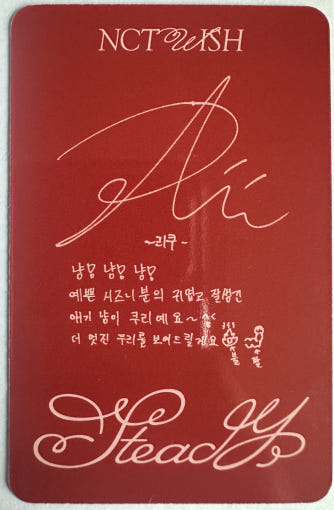 NCT WISH
~리쿠~
냥냥 냥냥 냥냥
예쁜 시즈니 분의 귀엽고 잘생긴
애기 냥이 쿠리예요~
더 멋진 무리를 보여드릴게요
Steady